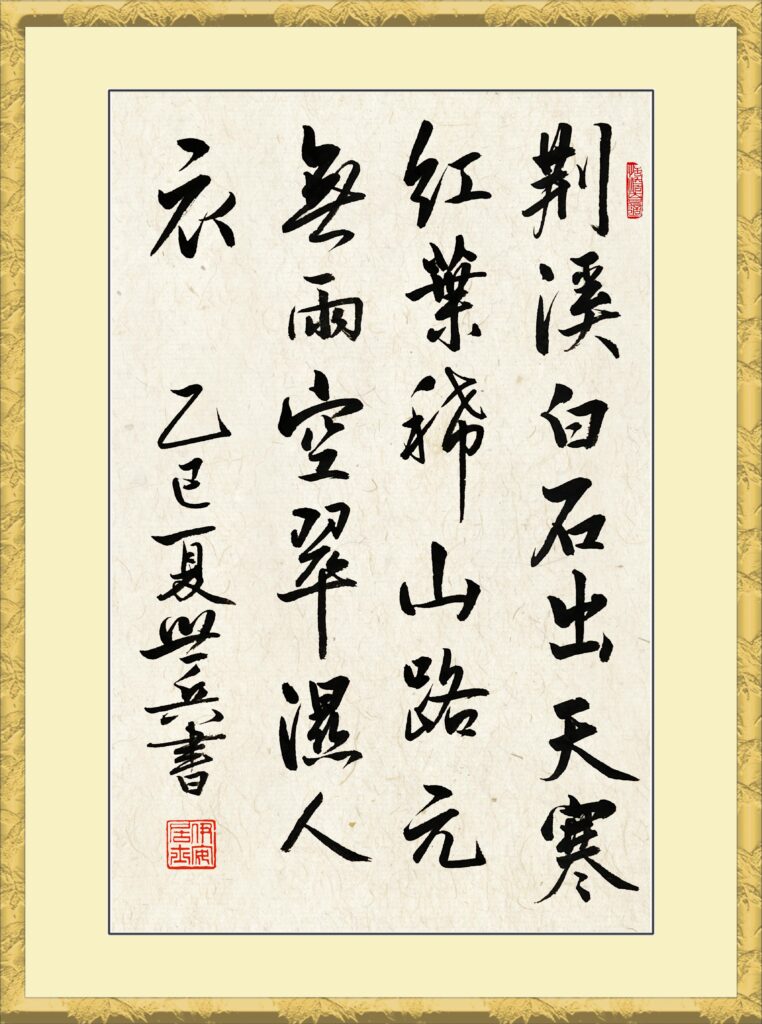 荆溪白石出天寒
紅葉稀山路元
無雨空翠濕人
衣
乙巳夏世兵書